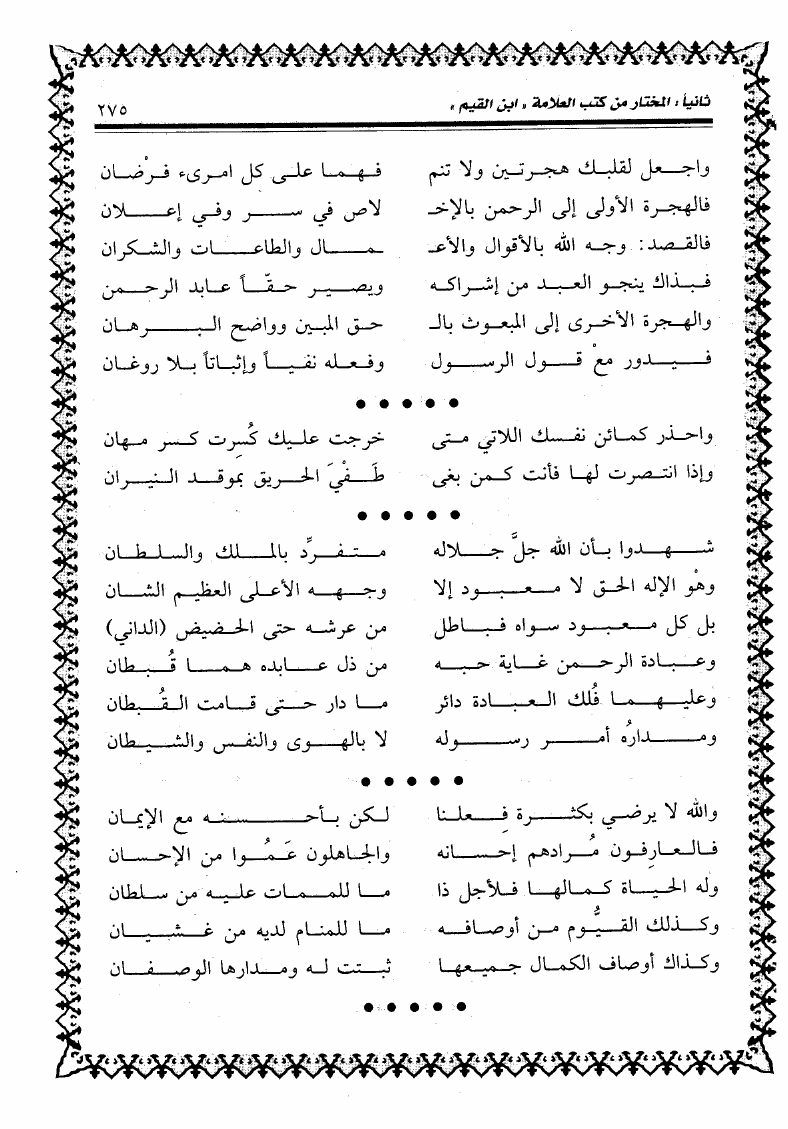 ثانياً : المختار من كتب العلامة « ابن القيم » ٢٧٥
واجعل لقلبك هجرتين ولا تنم فهما على كل امرىء فرْضان
فالهجرة الأولى إلى الرحمن بالإخـ لاص في سر وفي إعلان
فالقصد : وجه الله بالأقوال والأعـ ـمال والطاعات والشكران
فبذاك ينجو العبد من إشراكه ويصير حقّاً عابد الرحمن
والهجرة الأخرى إلى المبعوث بالـ حق المبين وواضح البرهان
فيدور معْ قول الرسول وفعله نفياً وإثباتاً بلا روغان
● ● ● ● ●
واحذر كمائن نفسك اللاتي متى خرجت عليك كُسِرت كسر مهان
وإذا انتصرت لها فأنت كمن بغى طَفْيَ الحريق بموقد النيران
● ● ● ● ●
شهدوا بأن الله جلَّ جلاله متفرِّد بالملك والسلطان
وهْو الإله الحق لا معبود إلا وجهه الأعلى العظيم الشان
بل كل معبود سواه فباطل من عرشه حتى الحضيض (الداني)
وعبادة الرحمن غاية حبه من ذل عابده هما قُبطان
وعليهما فُلك العبادة دائر ما دار حتى قامت القُبطان
ومدارُه أمر رسوله لا بالهوى والنفس والشيطان
● ● ● ● ●
والله لا يرضي بكثرة فِعلنا لكن بأحسنه مع الإيمان
فالعارِفون مُرادهم إحسانه والجاهلون عَمُوا من الإحسان
وله الحياة كمالها فلأجل ذا ما للممات عليه من سلطان
وكذلك القيُّوم من أوصافه ما للمنام لديه من غشيان
وكذاك أوصاف الكمال جميعها ثبتت له ومدارها الوصفان
● ● ● ● ●